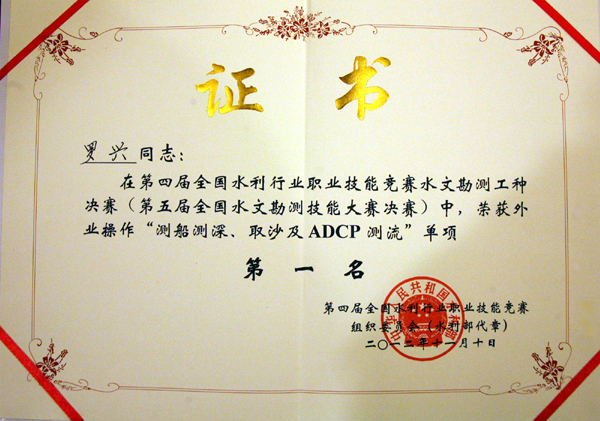 证书
罗兴同志：
在第四届全国水利行业职业技能竞赛水文勘测工种
决赛（第五届全国水文勘测技能大赛决赛）中，荣获外
业操作“测船测深、取沙及ADCP测流”单项
第一名
第四届全国水利行业职业技能竞赛
组织委员会（水利部代章）
二〇一二年十一月十日